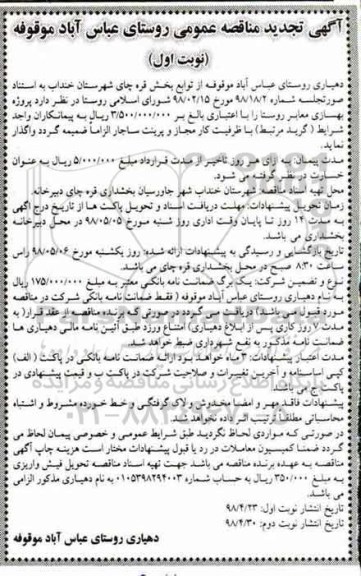 آگهی تجدید مناقصه عمومی روستای عباس آباد موقوفه
(نوبت اول)
دهیاری روستای عباس آباد موقوفه از توابع بخش قره چای شهرستان خنداب به استناد
صورتجلسه شماره ۹۸/۱۸/۲ مورخ ۹۸/۰۲/۱۵ شورای اسلامی روستا در نظر دارد پروژه
بهسازی معابر روستا را با اعتباری بالغ بر ۳/۵۰۰/۰۰۰/۰۰۰ ریال به پیمانکاران واجد
شرایط (گرید مرتبط) با ظرفیت کار مجاز و پرینت ساجار الزاما ضمیمه گردد واگذار
نماید.
مدت پیمان: به ازای هر روز تاخیر از مدت قرارداد مبلغ ۵/۰۰۰/۰۰۰ ریال به عنوان
خسارت در نظر گرفته می شود.
محل تهیه اسناد مناقصه: شهرستان خنداب شهر جاورسیان بخشداری قره چای دبیرخانه.
زمان تحویل پیشنهادات: مهلت دریافت اسناد و تحویل پاکت ها از تاریخ درج آگهی
به مدت ۱۴ روز تا پایان وقت اداری روز شنبه مورخ ۹۸/۰۵/۰۵ در محل دبیرخانه
بخشداری می باشد.
تاریخ بازگشایی و رسیدگی به پیشنهادات ارائه شده: روز یکشنبه مورخ ۹۸/۰۵/۰۶ راس
ساعت ۸:۳۰ صبح در محل بخشداری قره چای می باشد.
نوع و تضمین شرکت: یک برگ ضمانت نامه بانکی معتبر به مبلغ ۱۷۵/۰۰۰/۰۰۰ ریال
به نام دهیاری روستای عباس آباد موقوفه (فقط ضمانت نامه بانکی شرکت در مناقصه
مورد قبول می باشد) دریافت می گردد در صورتی که برنده مناقصه از عقد قرارداد به
مدت ۷ روز کاری پس از ابلاغ دهیاری امتناع ورزد طبق آئین نامه مالی دهیاری ها
ضمانت نامه مذکور به نفع شهرداری ضبط خواهد شد.
مدت اعتبار پیشنهادات: ۳ ماه خواهد بود ارائه ضمانت نامه بانکی در پاکت (الف)
کپی اساسنامه و آخرین تغییرات و صلاحیت شرکت در پاکت ب و قیمت پیشنهادی در
پاکت ج می باشد.
پیشنهادات فاقد مهر و امضا مخدوش و لاک گرفتگی و خط خورده مشروط و اشتباه
محاسباتی مطلقا ترتیب اثر داده نخواهد شد.
در صورتی که مواردی لحاظ نگردید طبق شرایط عمومی و خصوصی پیمان لحاظ می
گردد ضمنا کمیسیون معاملات در رد یا قبول پیشنهادات مختار است هزینه چاپ آگهی
مناقصه به عهده برنده مناقصه می باشد جهت تهیه اسناد مناقصه تحویل فیش واریزی
به مبلغ ۳۵۰/۰۰۰ ریال به حساب شماره ۰۱۰۵۳۹۸۲۹۴۰۰۳ به نام دهیاری مذکور الزامی
می باشد.
تاریخ انتشار نوبت اول: ۹۸/۴/۲۳
تاریخ انتشار نوبت دوم: ۹۸/۴/۳۰
دهیاری روستای عباس آباد موقوفه